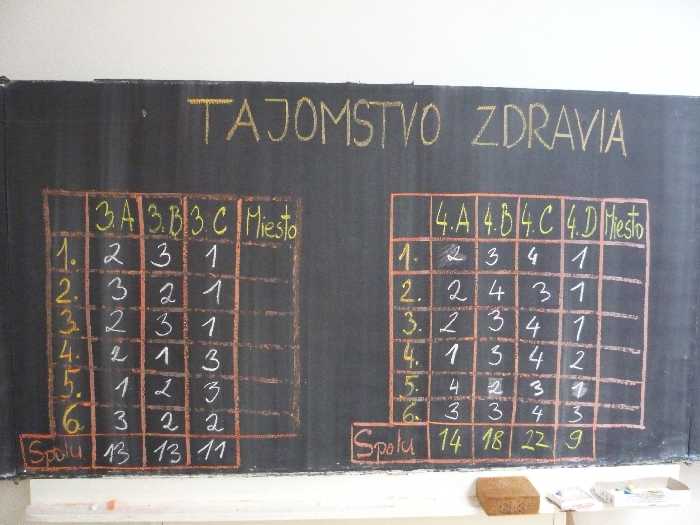 TAJOMSTVO ZDRAVIA
3.A 3.B 3.C Miesto
1. 2 3 1
2. 3 2 1
3. 2 3 1
4. 2 1 3
5. 1 2 3
6. 3 2 2
Spolu 13 13 11
4.A 4.B 4.C 4.D Miesto
1. 2 3 4 1
2. 2 4 3 1
3. 2 3 4 1
4. 1 3 4 2
5. 4 2 3 1
6. 3 3 4 3
Spolu 14 18 22 9